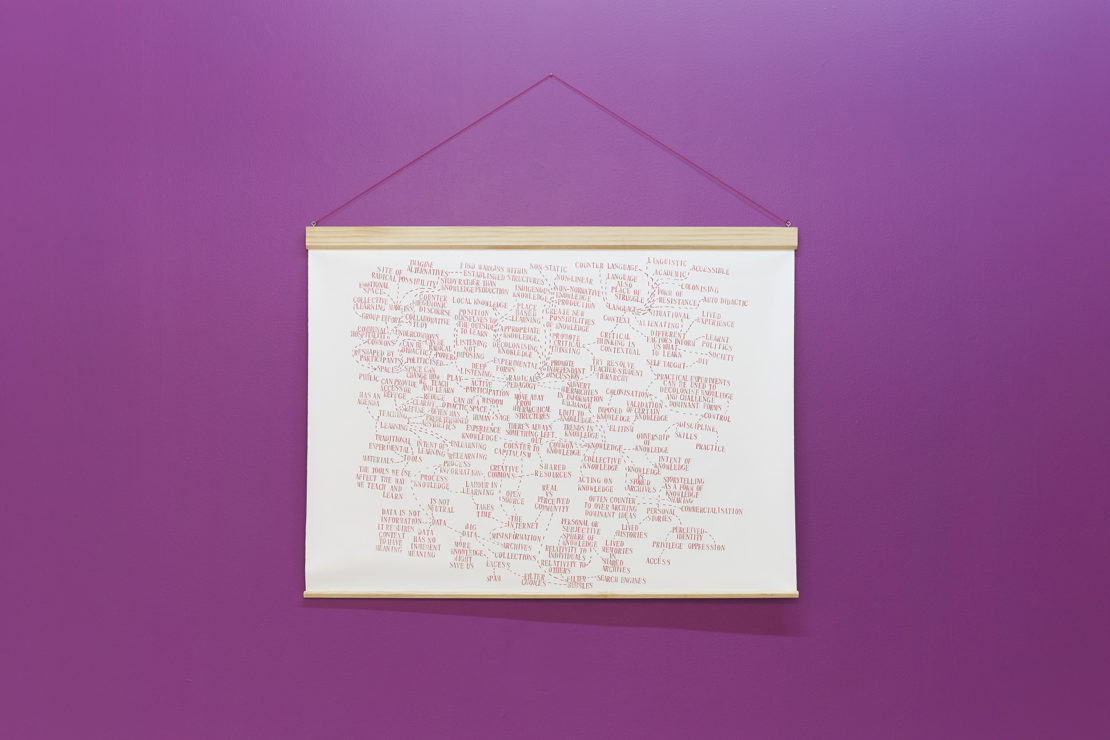 IMAGINE
ALTERNATIVES
SITE OF
RADICAL POSSIBILITY
EMOTIONAL
SPACE
COLLECTIVE
LEARNING
GROUP EFFORT
COUNTER
HEGEMONIC
DISCOURSE
COLLABORATIVE
STUDY
FIND MARGINS WITHIN
ESTABLISHED STRUCTURES
STUDY RATHER THAN
KNOWLEDGE PRODUCTION
NON-STATIC
NON-LINEAR
NON-NORMATIVE
KNOWLEDGE
PRODUCTION
INDIGENOUS
KNOWLEDGE
COUNTER LANGUAGE
LANGUAGE
ALSO
PLACE OF
STRUGGLE
LANGUAGE
LINGUISTIC
ACADEMIC
ACCESSIBLE
COLONISING
FORM OF
RESISTANCE
AUTO DIDACTIC
LOCAL KNOWLEDGE
POSITION
OURSELVES TO
THE OUTSIDE
TO LEARN
PLACE
BASED
LEARNING
CREATE NEW
POSSIBILITIES
OF KNOWLEDGE
CONTEXT
SITUATIONAL
ALIENATING
LIVED
EXPERIENCE
COMMUNAL
HOSPITALITY
COMMONS
UNDERCOMMONS
RESHAPED BY
PARTICIPANTS
SPACE
POLITICISED
SPACE CAN
CHANGE HOW
WE TEACH
AND LEARN
LISTENING
NOT
IMPOSING
DEEP
LISTENING
APPROPRIATE
KNOWLEDGE
DECOLONISING
KNOWLEDGE
EXPERIMENTAL
FORMS
PROMOTE
CRITICAL
THINKING
CRITICAL
THINKING IS
CONTEXTUAL
DIFFERENT
FACTORS INFORM
US WHAT
TO LEARN
LEARNT
POLITICS
SOCIETY
DIY
SELF TAUGHT
PROMOTE
INDEPENDENT
DISCUSSION
TRY RESOLVE
TEACHER-STUDENT
HIERARCHY
PLAY
ACTIVE
PARTICIPATION
RADICAL
PEDAGOGY
PUBLIC CAN PROVIDE
ACCESS OR
REFUGE
HAS AN
AGENDA
TEACHING
LEARNING
REDUCE
CLARIFY
DIDACTIC SPACE
OFTEN HAS
PREDETERMINED
AESTHETICS
CAN BE A WISDOM
HUMAN
SAGE
MOVE AWAY
FROM
HIERARCHICAL
STRUCTURES
SUBVERT
HIERARCHIES
IN INFORMATION
EXCHANGE
COLONISATION
PRACTICAL EXPERIMENTS
CAN BE USED TO
DECOLONISE KNOWLEDGE
AND CHALLENGE
DOMINANT FORMS
CONTROL
VALIDATION
OF CERTAIN
KNOWLEDGE
IMPOSED
KNOWLEDGE
ELITISM
LIMIT TO
KNOWLEDGE
TRENDS IN
KNOWLEDGE
EXPERIENCE
KNOWLEDGE
THERE'S ALWAYS
SOMETHING LEFT
OUT
COUNTER TO
CAPITALISM
COMMON
KNOWLEDGE
KNOWLEDGE
OWNERSHIP
OF
KNOWLEDGE
DISCIPLINE
SKILLS
PRACTICE
TRADITIONAL
EXPERIMENTAL
MATERIALS
TOOLS
INTENT OF
LEARNING
UNLEARNING
RELEARNING
PROCESS
INFORMATION
PROCESS
KNOWLEDGE
THE TOOLS WE USE
AFFECT THE WAY
WE TEACH AND
LEARN
LABOUR IN
LEARNING
TAKES
TIME
CREATIVE
COMMONS
SHARED
RESOURCES
OPEN
SOURCE
REAL
VS
PERCEIVED
COMMUNITY
COLLECTIVE
KNOWLEDGE
ACTING ON
KNOWLEDGE
KNOWLEDGE
IS
STORED
ARCHIVES
INTENT OF
KNOWLEDGE
STORYTELLING
AS A FORM OF
KNOWLEDGE
SHARING
COMMERCIALISATION
OFTEN COUNTER
TO OVER ARCHING
DOMINANT IDEAS
PERSONAL
STORIES
IS NOT
NEUTRAL
DATA IS NOT
INFORMATION
IT REQUIRES
CONTEXT
TO HAVE
MEANING
DATA
DATA
HAS NO
INHERENT
MEANING
BIG
DATA
MORE
KNOWLEDGE
MIGHT
SAVE US
THE
INTERNET
MISINFORMATION
ARCHIVES
COLLECTIONS
EXCESS
SPAM
PERSONAL OR
SUBJECTIVE
SPHERE OF
KNOWLEDGE
RELATIVITY TO
INDIVIDUALS
RELATIVITY TO
OTHERS
LIVED
HISTORIES
LIVED
MEMORIES
IN
SHARED
ARCHIVES
PERCEIVED
IDENTITY
PRIVILEGE
OPPRESSION
ACCESS
FILTER
CHOICES
FILTER
BUBBLES
SEARCH ENGINES